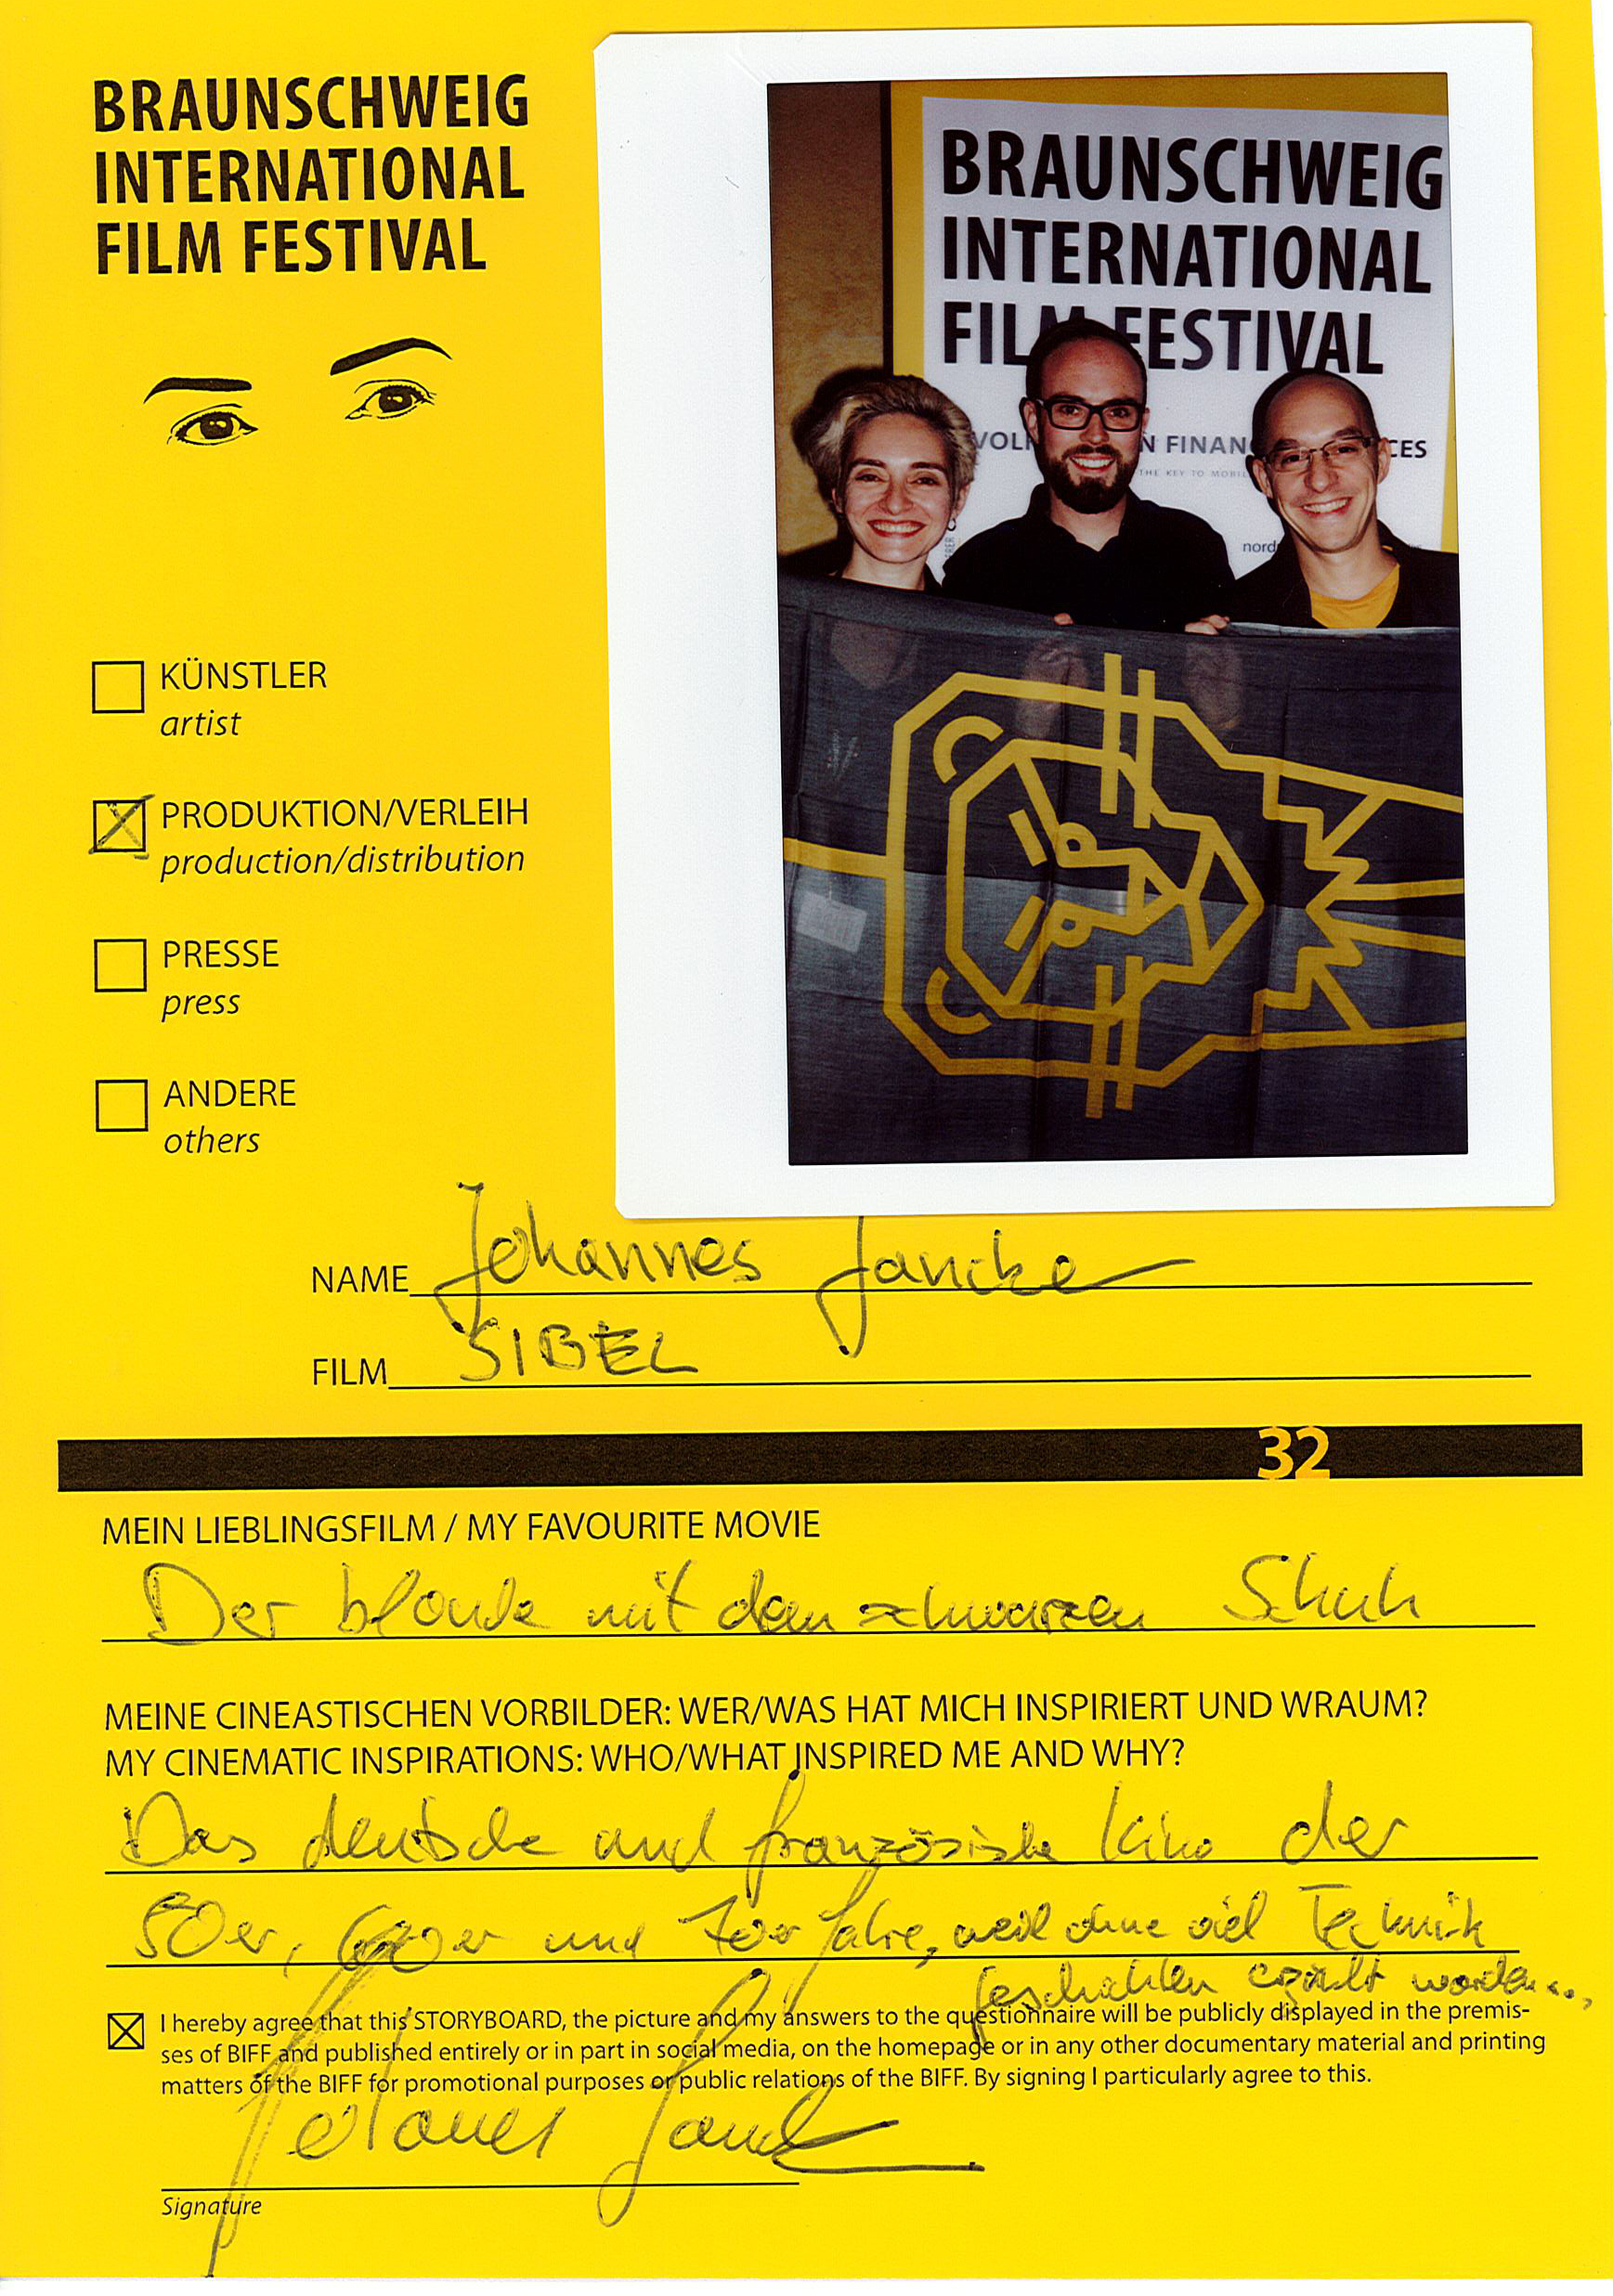 BRAUNSCHWEIG
INTERNATIONAL
FILM FESTIVAL
BRAUNSCHWEIG
INTERNATIONAL
FILM FESTIVAL
THE KEY TO
KÜNSTLER
artist
PRODUKTION/VERLEIH
production/distribution
PRESSE
press
ANDERE
others
NAME Johannes Jancke
FILM SIBEL
32
MEIN LIEBLINGSFILM / MY FAVOURITE MOVIE
Der blonde mit dem schwarzen Schuh
MEINE CINEASTISCHEN VORBILDER: WER/WAS HAT MICH INSPIRIERT UND WRAUM?
MY CINEMATIC INSPIRATIONS: WHO/WHAT INSPIRED ME AND WHY?
Das deutsche und französische Kino der
50er, 60er und 70er Jahre, weil ohne viel Technik
Geschichten erzählt worden...
I hereby agree that this STORYBOARD, the picture and my answers to the questionnaire will be publicly displayed in the premis-
ses of BIFF and published entirely or in part in social media, on the homepage or in any other documentary material and printing
matters of the BIFF for promotional purposes or public relations of the BIFF. By signing I particularly agree to this.
Johannes Jancke
Signature